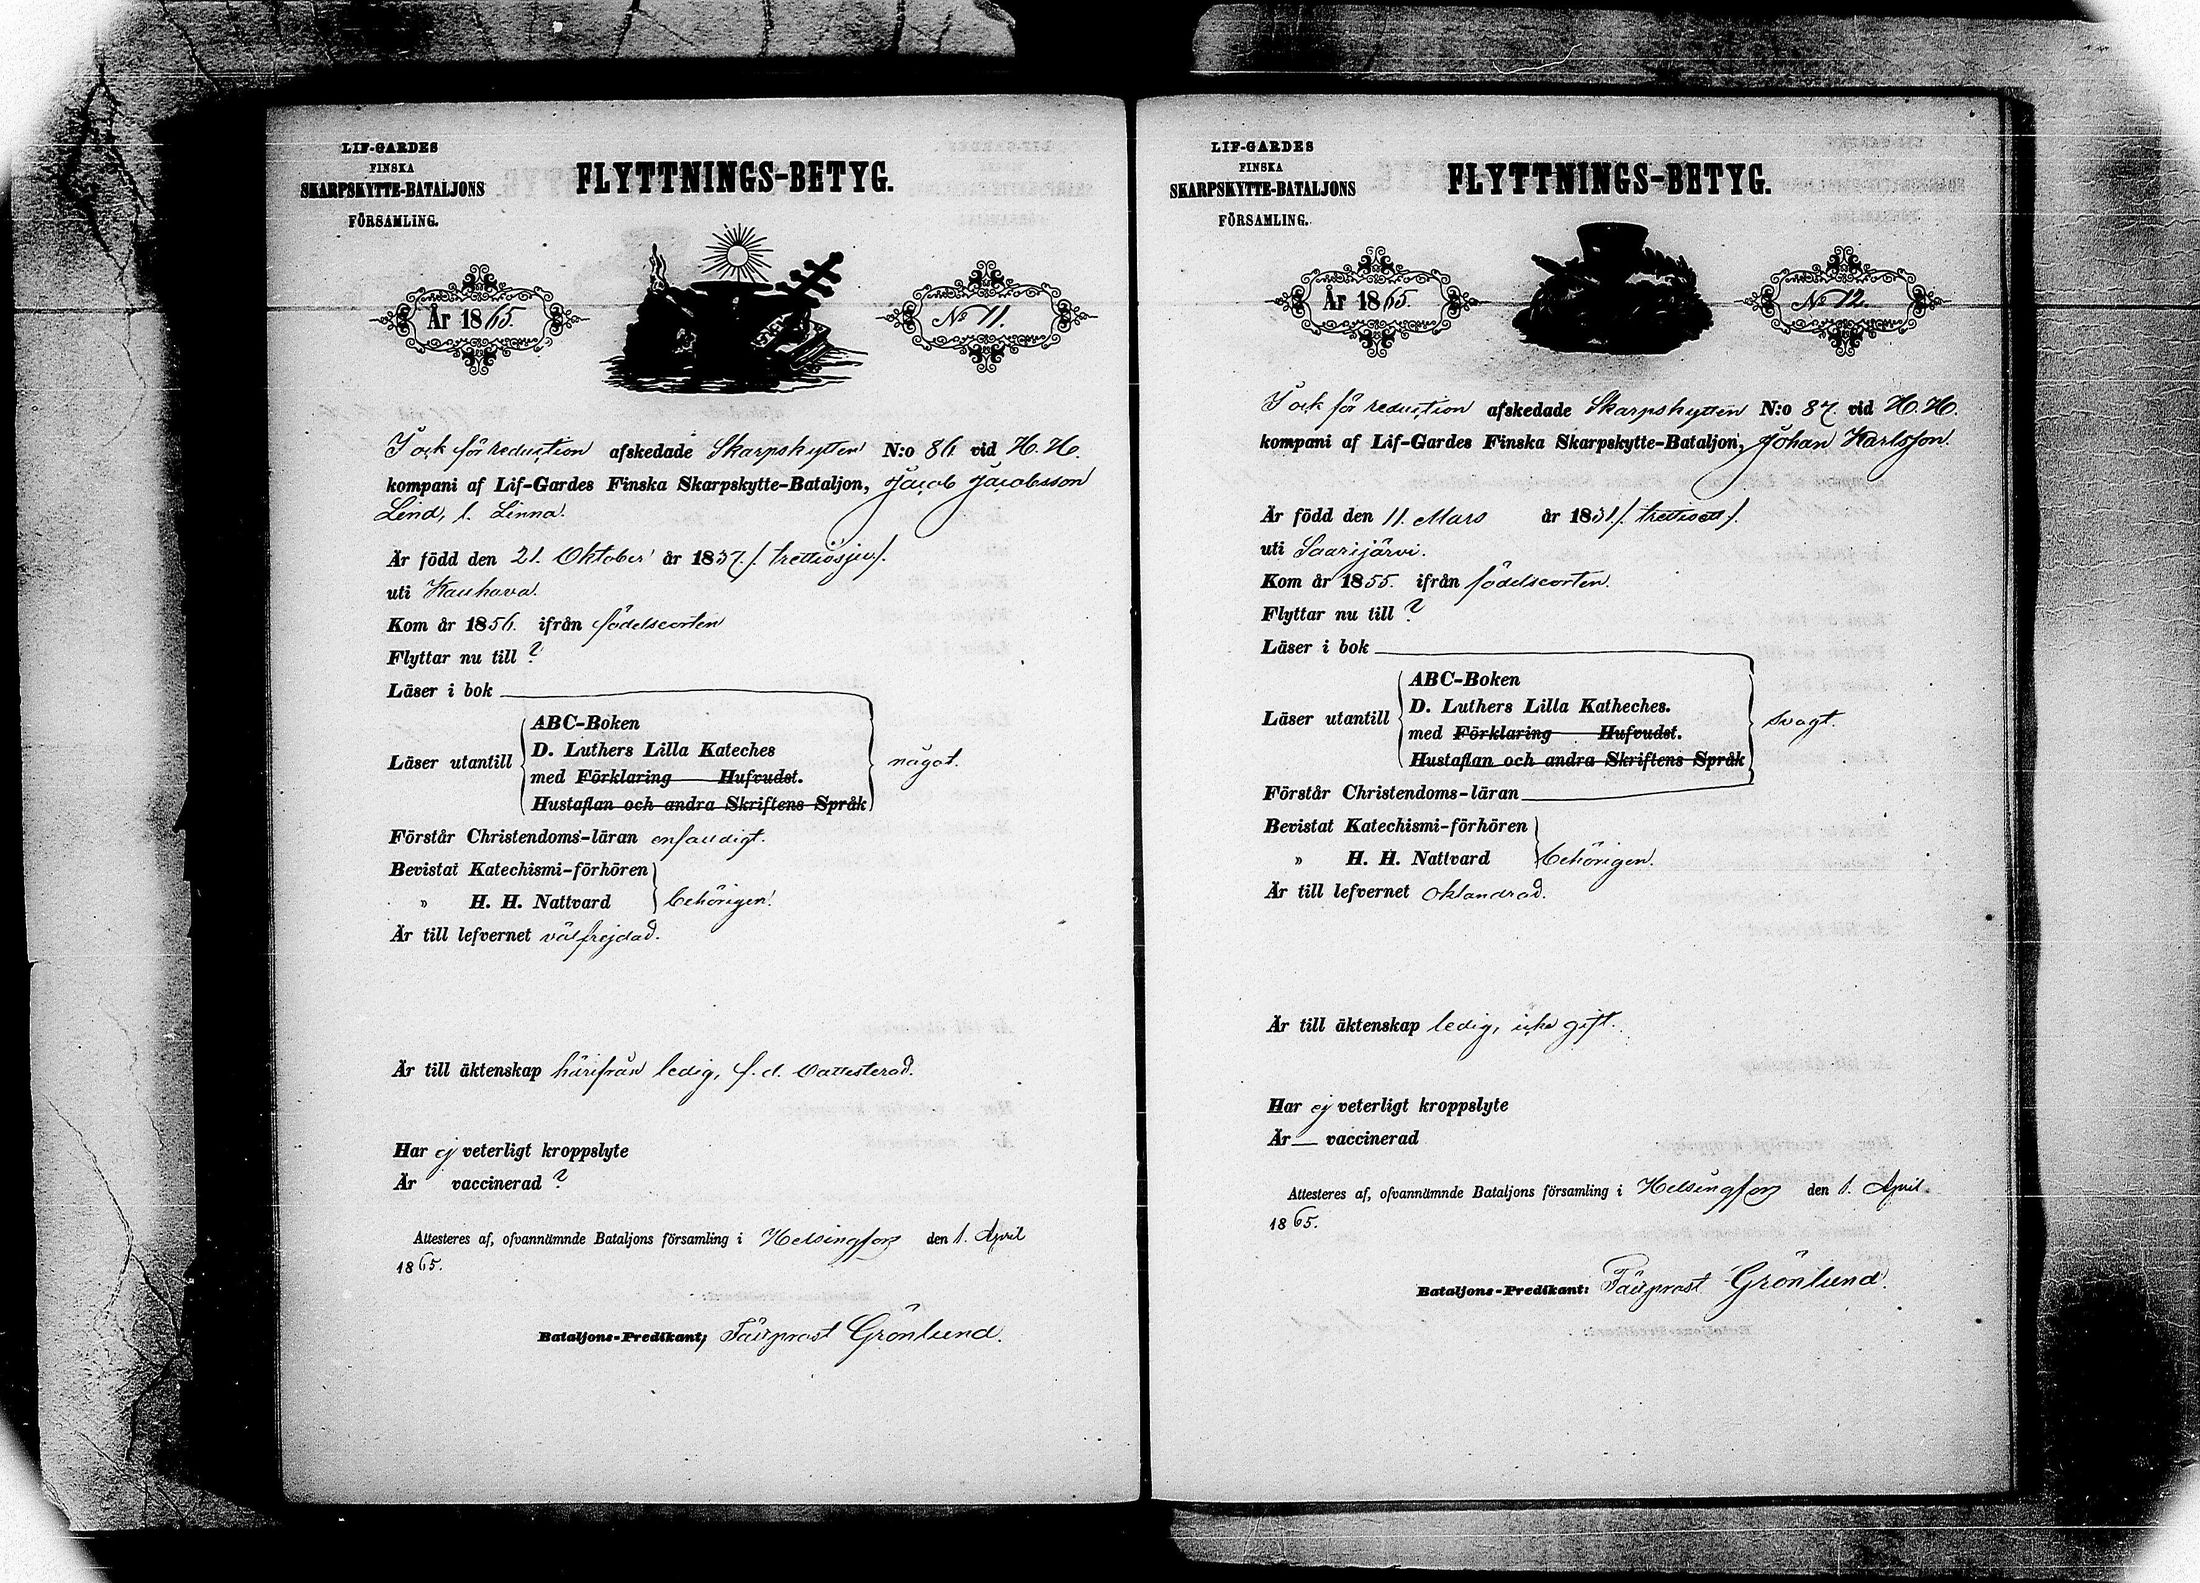 LIF-GARDES
FINSKA
SKARPSKYTTE-BATALJONS
FÖRSAMLING.
FLYTTNINGS-BETYG.
År 1865.
No 11.
och för reduction afskedade Skarpskytten N:o 86 vid H. H.
kompani af Lif-Gardes Finska Skarpskytte-Bataljon, Jacob Jacobsson
Lind, l. Linna.
Är född den 21. Oktober år 1837./: trettiosju/.
uti Kauhava.
Kom år 1856. ifrån födelseorten
Flyttar nu till ?
Läser i bok
Läser utantill
ABC-Boken
D. Luthers Lilla Kateches
med Förklaring Hufvudst.
Hustaflan och andra Skriftens Språk
något.
Förstår Christendoms-läran enfaldigt.
Bevistat Katechismi-förhören
" H. H. Nattvard behörigen.
Är till lefvernet välfrejdad.
Är till äktenskap härifrån ledig, f. d.
Har ej veterligt kroppslyte
Är vaccinerad ?
Attesteres af, ofvannämnde Bataljons församling i Helsingfors den 1. April
1865.
Bataljons-Predikant, Fältprost Grönlund.
LIF-GARDES
FINSKA
SKARPSKYTTE-BATALJONS
FÖRSAMLING.
FLYTTNINGS-BETYG.
År 1865.
No 12.
och för reduction afskedade Skarpskytten N:o 87. vid H. H.
kompani af Lif-Gardes Finska Skarpskytte-Bataljon, Johan Karlsson.
Är född den 11. Mars år 1831./. trettioett/.
uti Saarijärvi.
Kom år 1855. ifrån födelseorten.
Flyttar nu till ?
Läser i bok
Läser utantill
ABC-Boken
D. Luthers Lilla Katheches.
med Förklaring Hufvudst.
Hustaflan och andra Skriftens Språk
svagt.
Förstår Christendoms-läran
Bevistat Katechismi-förhören
" H. H. Nattvard behörigen.
Är till lefvernet oklandrad.
Är till äktenskap ledig, icke gift.
Har ej veterligt kroppslyte
Är — vaccinerad
Attesteres af, ofvannämnde Bataljons församling i Helsingfors den 1. April.
1865.
Bataljons-Predikant: Fältprost Grönlund.